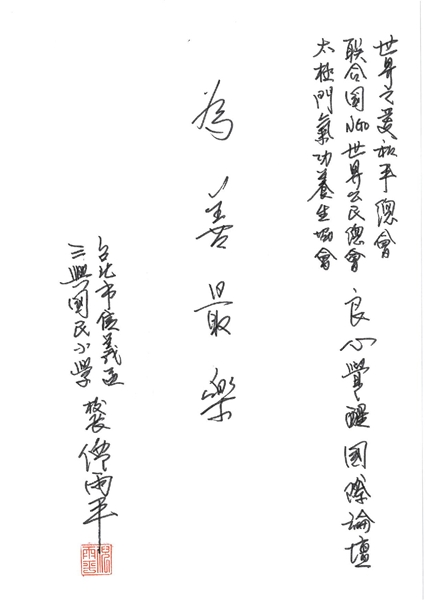 世界之愛和平總會
聯合國NGO世界公民總會
太極門氣功養生協會
良心覺醒國際論壇
為善最樂
台北市信義區
三興國民小學
校長 雨平